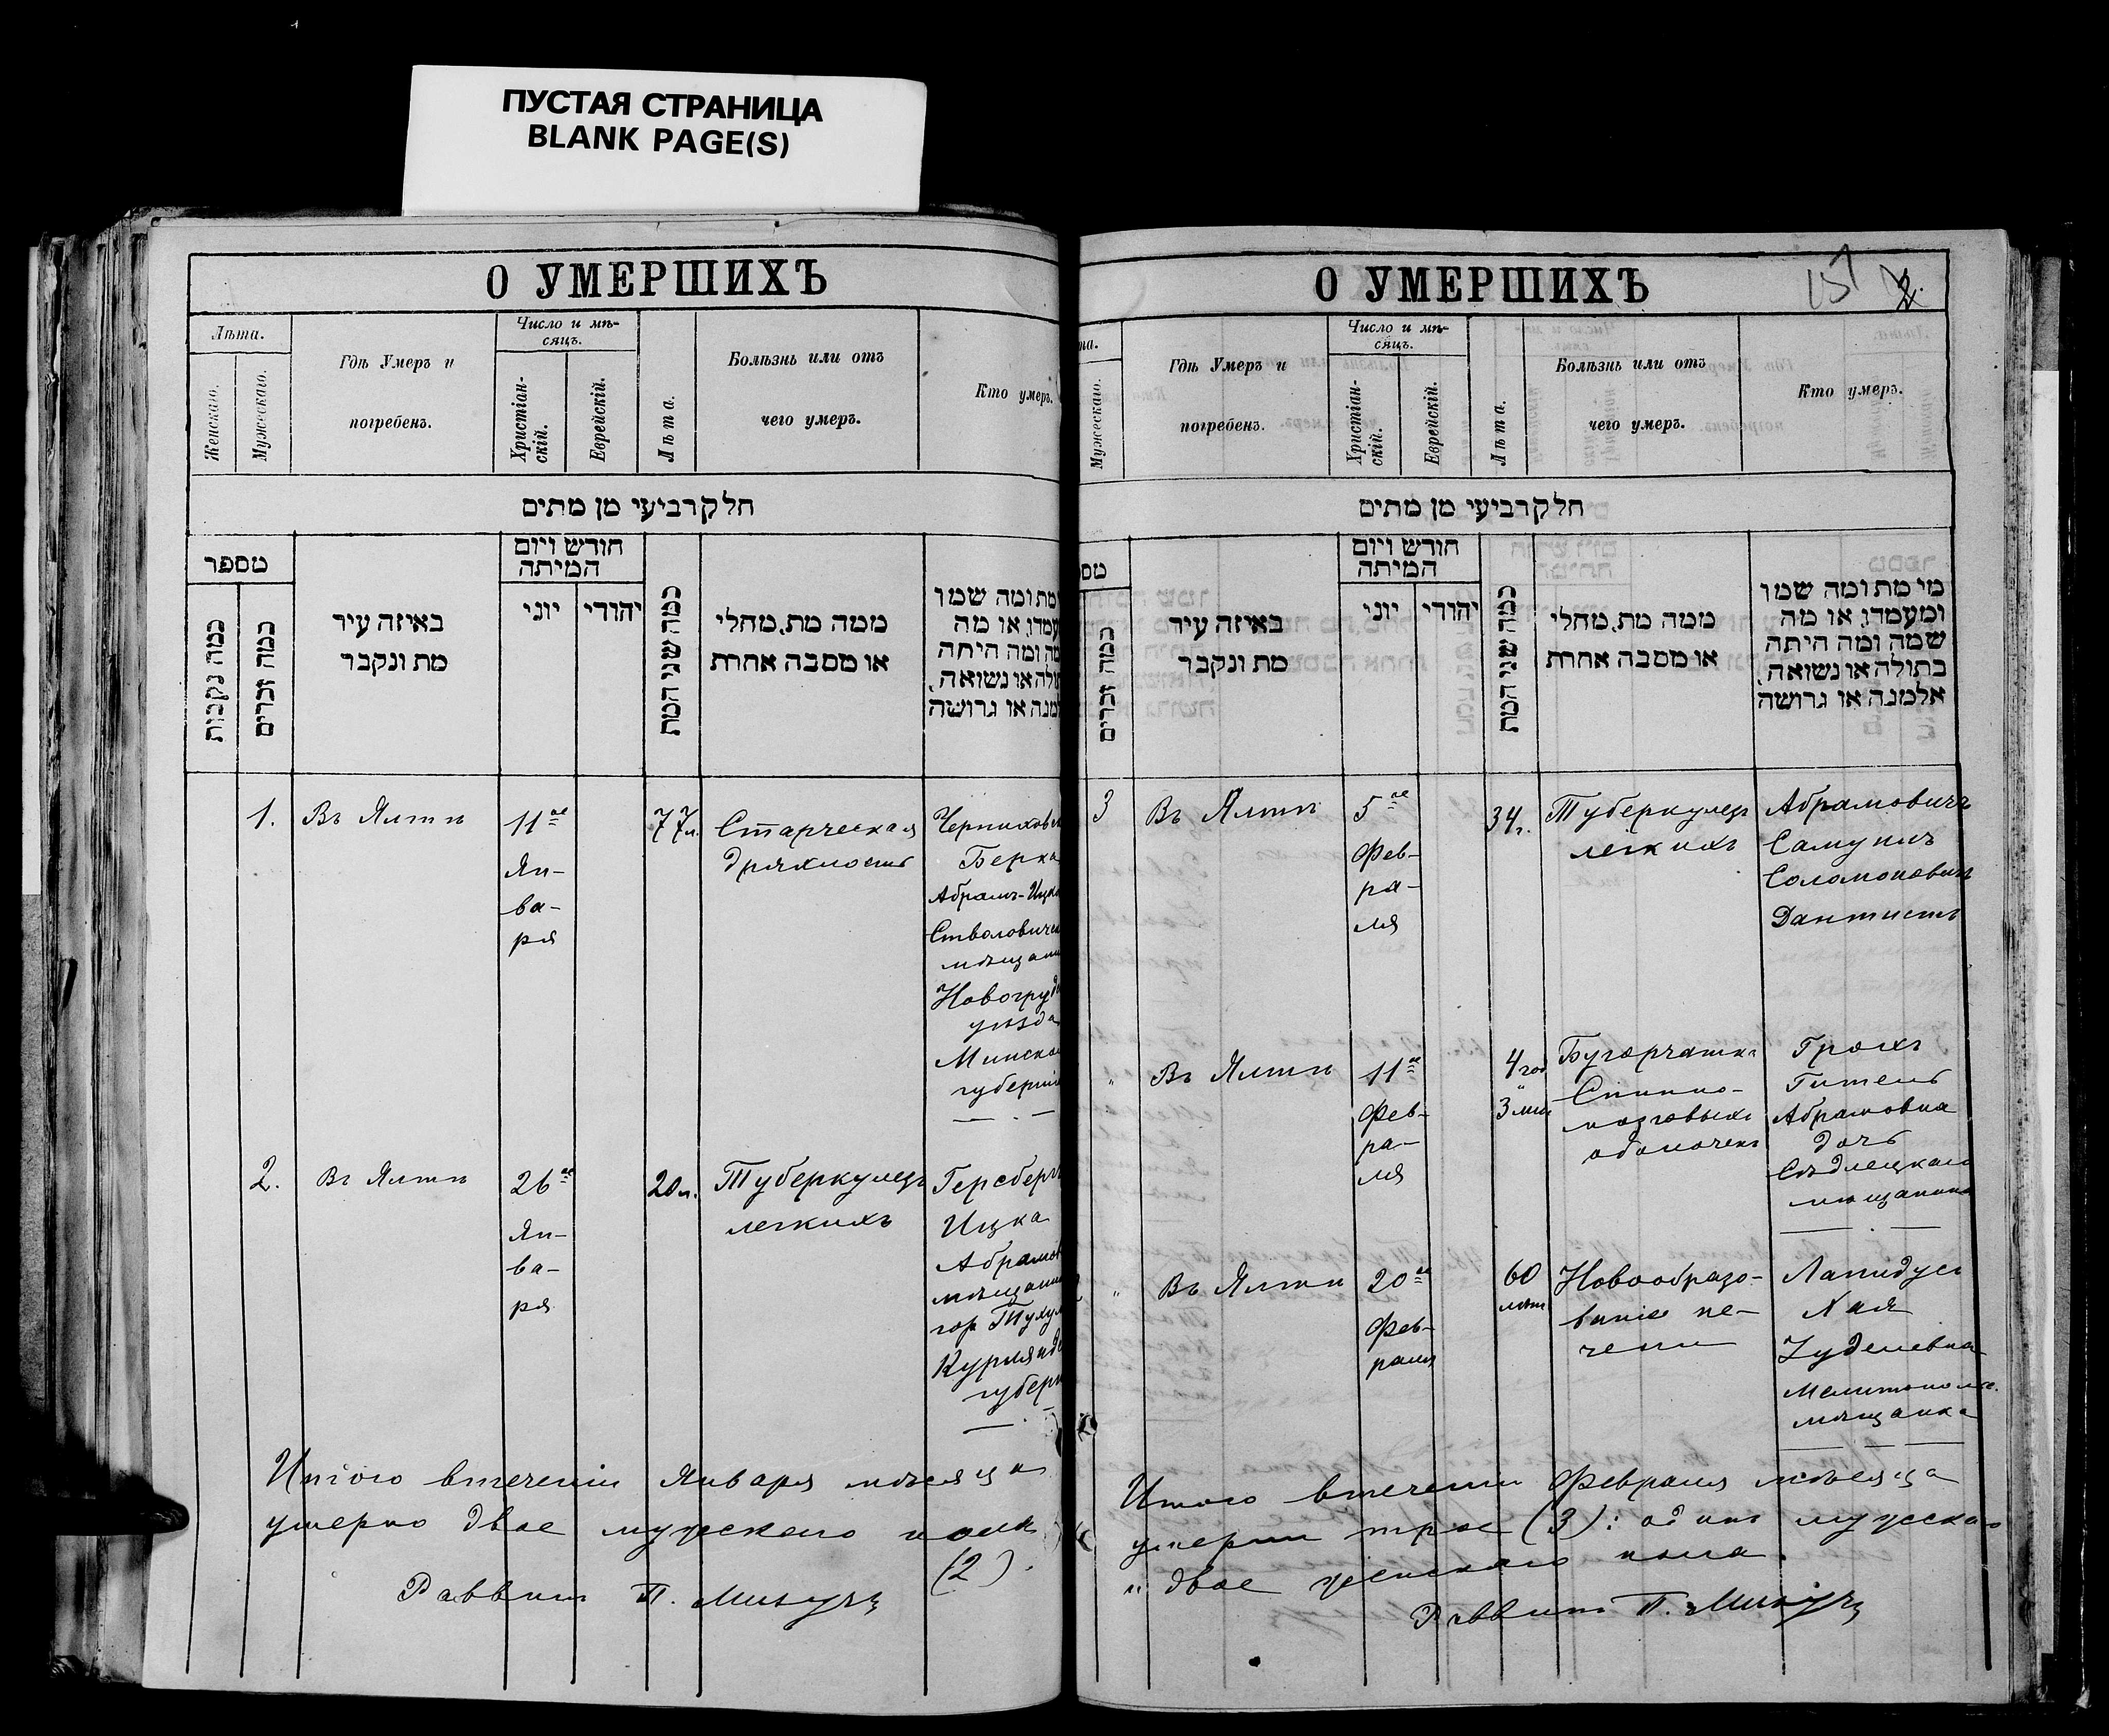 ПУСТАЯ СТРАНИЦА
BLANK PAGE(S)
О УМЕРШИХЪ
Лѣта.
Женскаго.
Мужескаго.
Гдѣ Умеръ и
погребенъ.
Число и мѣ-
сяцъ.
Христіан-
скій.
Еврейскій.
Лѣта.
Болѣзнь или отъ
чего умеръ.
Кто умеръ.
חלק רביעי מן מתים
מספר
כמה נקבות
כמה זכרים
באיזה עיר
מת ונקבר
חודש ויום
המיתה
יוני
יהודי
כמה שני המת
ממה מת, מחלי
או מסבה אחרת
מת ומה שמו
עמדו, או מה
מה ומה היתה
ולה או נשואה,
מנה או גרושה
1.
Въ Ялтѣ
11го
Ян-
ва-
ря
77л.
Старческая
дряхлость
Берка
Абрамъ-Ицк
мѣщани
Новогруд
уѣзда
Минско
губерніи
2.
Въ Ялтѣ
26го
Ян-
ва-
ря
20л.
Туберкулезъ
легкихъ
Герсбергъ
Ицка
Абрамов
мѣщани
гор.
Курлянд
губерн
Итого втеченіи Января мѣсяца
умерло двое мужскаго пола
(2).
Раввинъ П.
О УМЕРШИХЪ
157
2.
та.
Мужескаго.
Гдѣ Умеръ и
погребенъ.
Число и мѣ-
сяцъ.
Христіан-
скій.
Еврейскій.
Лѣта.
Болѣзнь или отъ
чего умеръ.
Кто умеръ.
חלק רביעי מן מתים
מס
כמה זכרים
באיזה עיר
מת ונקבר
חודש ויום
המיתה
יוני
יהודי
כמה שני המת
ממה מת, מחלי
או מסבה אחרת
מי מת ומה שמו
ומעמדו, או מה
שמה ומה היתה
בתולה או נשואה,
אלמנה או גרושה
3
Въ Ялтѣ
5го
Фев-
ра-
ля
34г.
Туберкулезъ
легкихъ
Абрамовичъ
Самуилъ
Соломоновичъ
Дантистъ
"
Въ Ялтѣ
11го
Фев-
ра-
ля
4 год
3 мѣс
Бугорчатка
Спинно-
мозговыхъ
оболочекъ
Абрамовна
дочь
Сѣдлецкаго
мѣщанина
"
Въ Ялтѣ
20го
Фев-
раля
60
лѣтъ
Новообразо-
ваніе пе-
чени
Лапидусъ
Хая
Мелитопольс.
мѣщанка
Итого втеченіи Февраля мѣсяца
умерли трое (3): одинъ мужска
и двое женскаго пола.
Раввинъ П.